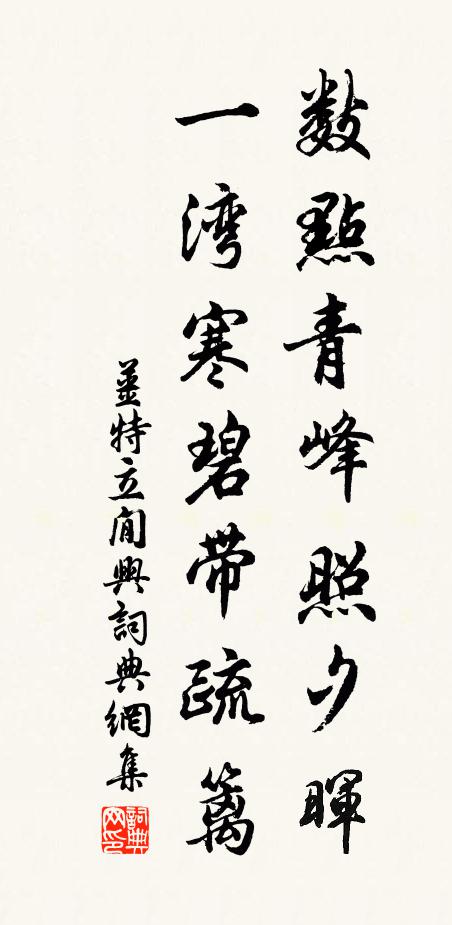 數點青峰照夕暉
一湾寒碧帶疏籬
姜特立閒興詞典網集
詞典網印